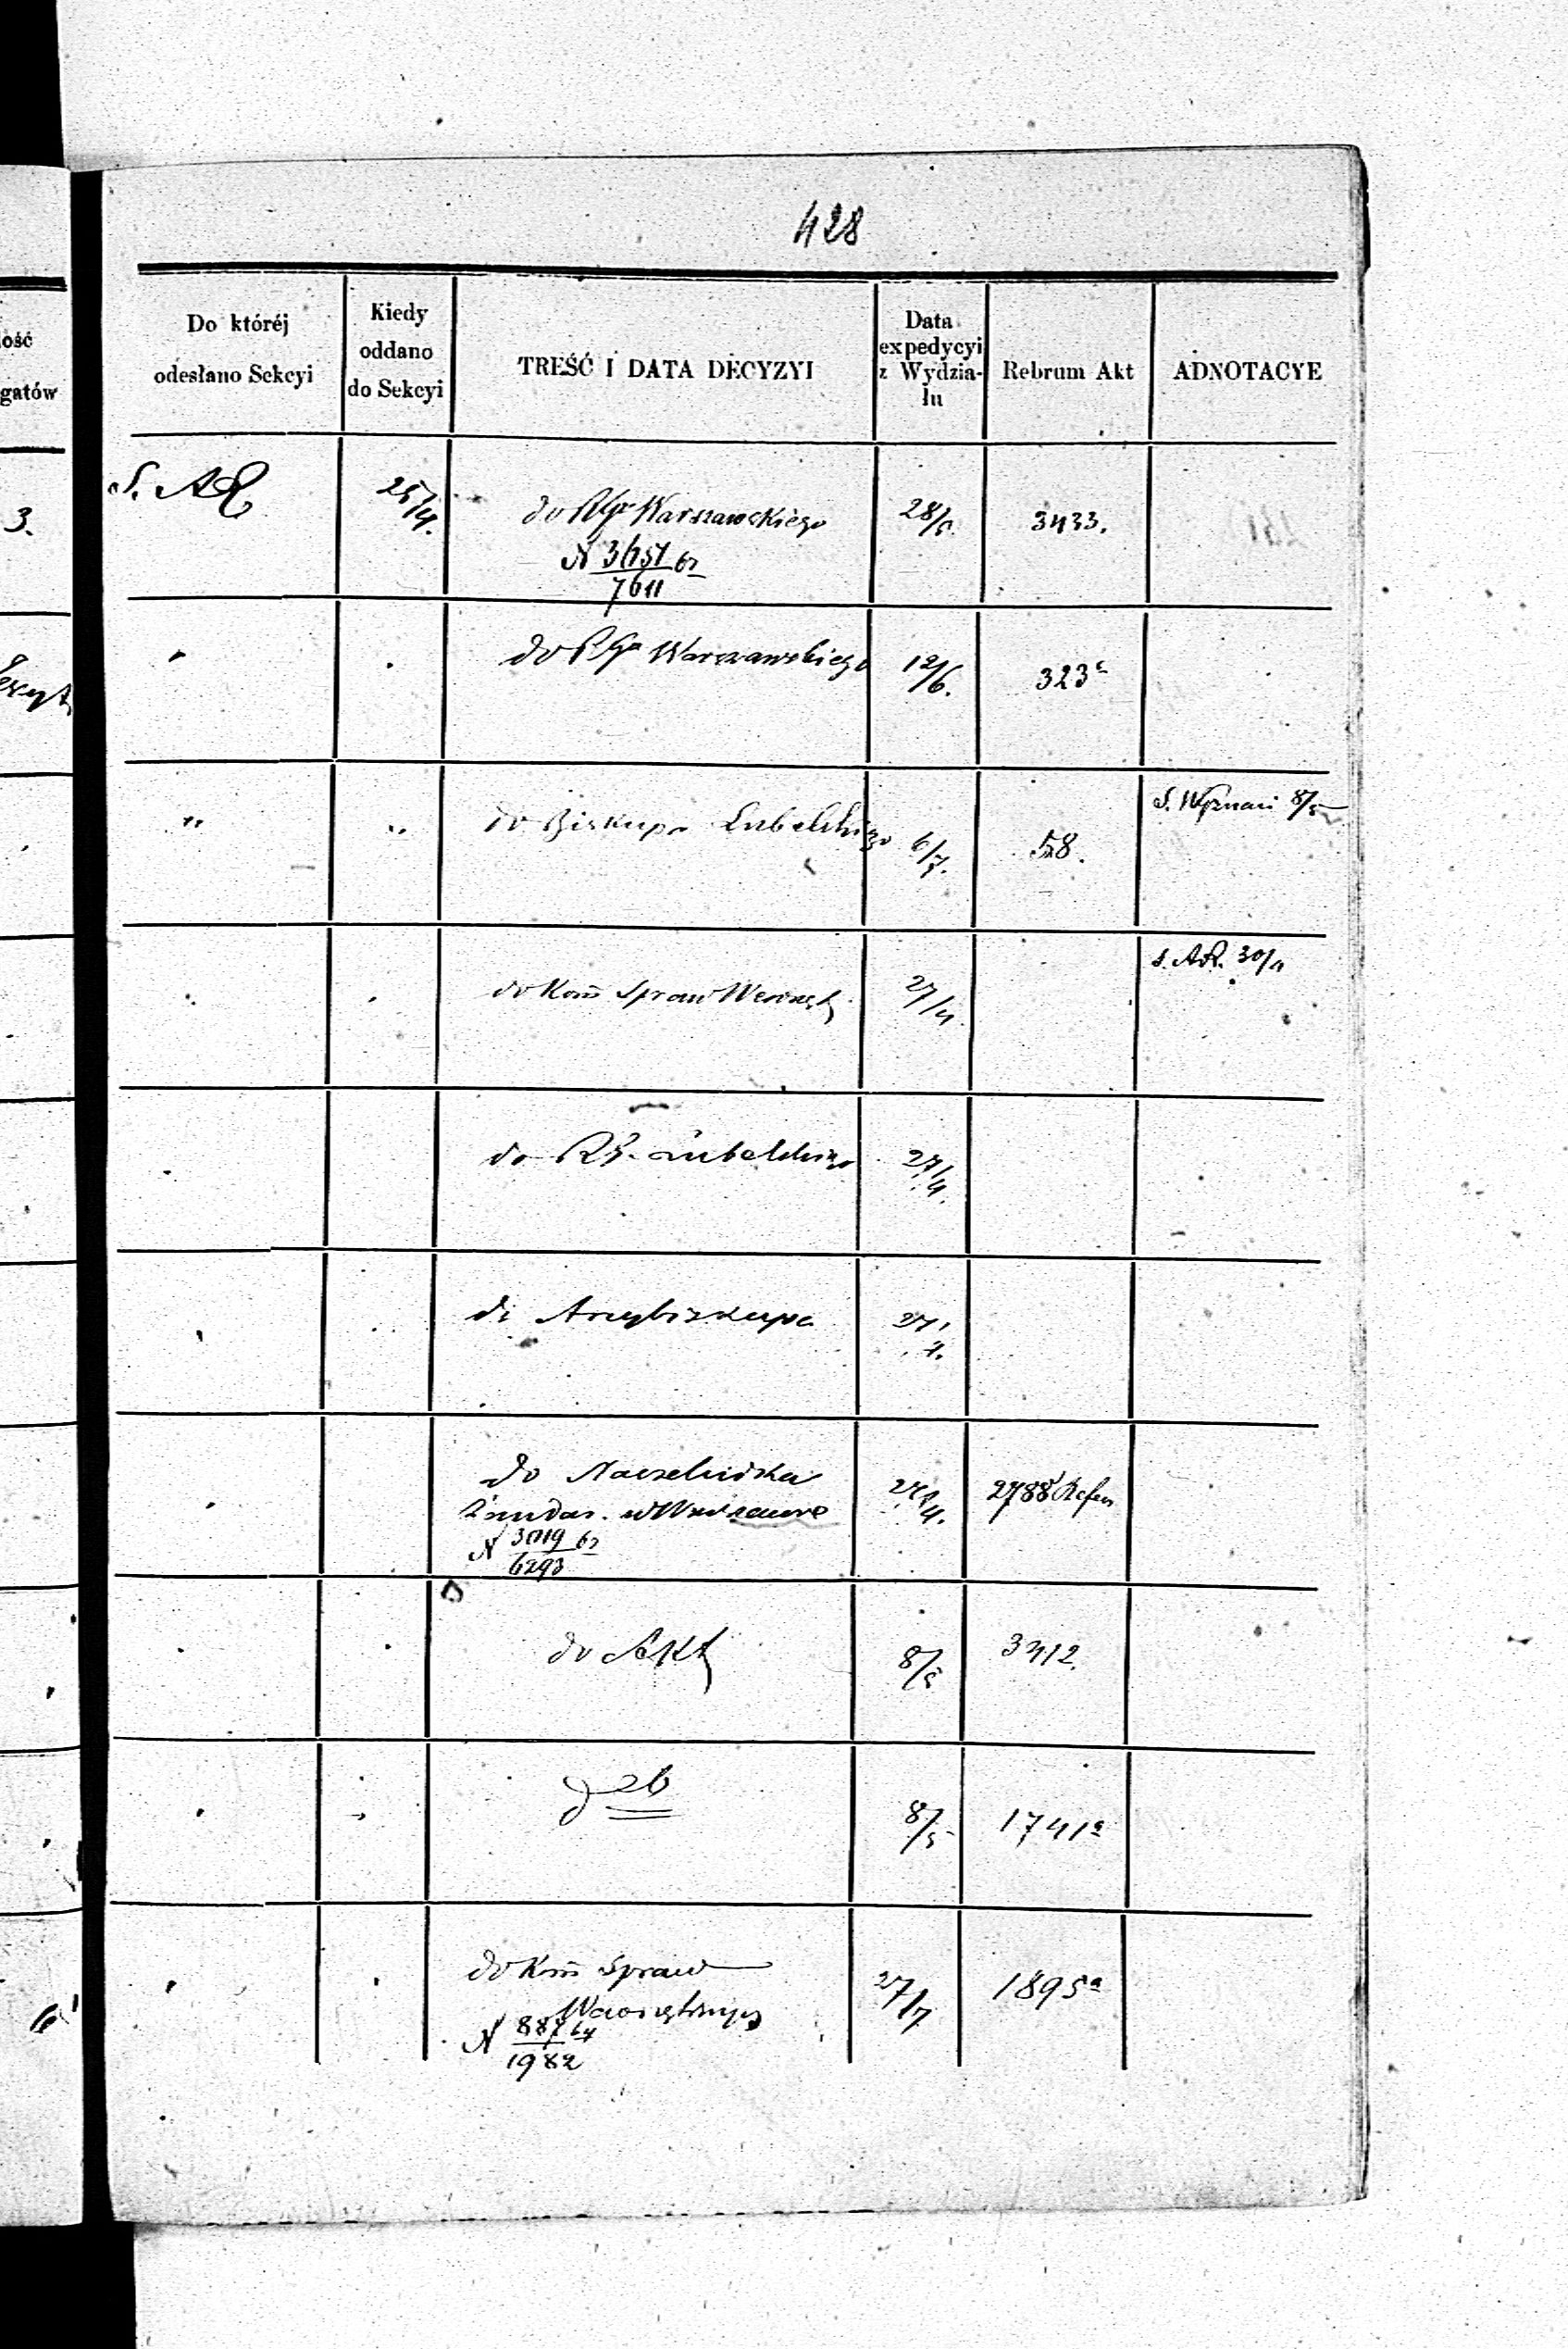 428
ość
gatów
Do któréj
odesłano Sekcyi
Kiedy
oddano
do Sekcyi
TREŚĆ I DATA DECYZYI
Data
expedycyi
z Wydzia-
łu
Rebrum Akt
ADNOTACYE
3.
S. AR
25/4.
do RGo Warszawskiego
N 3657/7611 63
28/5.
3433.
do RGo Warszawskiego
12/6.
323c
" "
do Biskupa Lubelskiego
6/7.
58.
S. Wyznań 8/5
do Kom Spraw Wewnęt
27/4
S. AR. 30/4
do RG. Lubelskiego
27/4.
do Arcybiskupa
27/4.
do Naczelnika
Żandar. w Warszawie
N 3019/6293 63
27/4.
2788 Refer
do Akt
8/5
3412.
8/5
1741a
do Kom Spraw
Wewnętrznych
N 887/1982 64
27/7
1895a